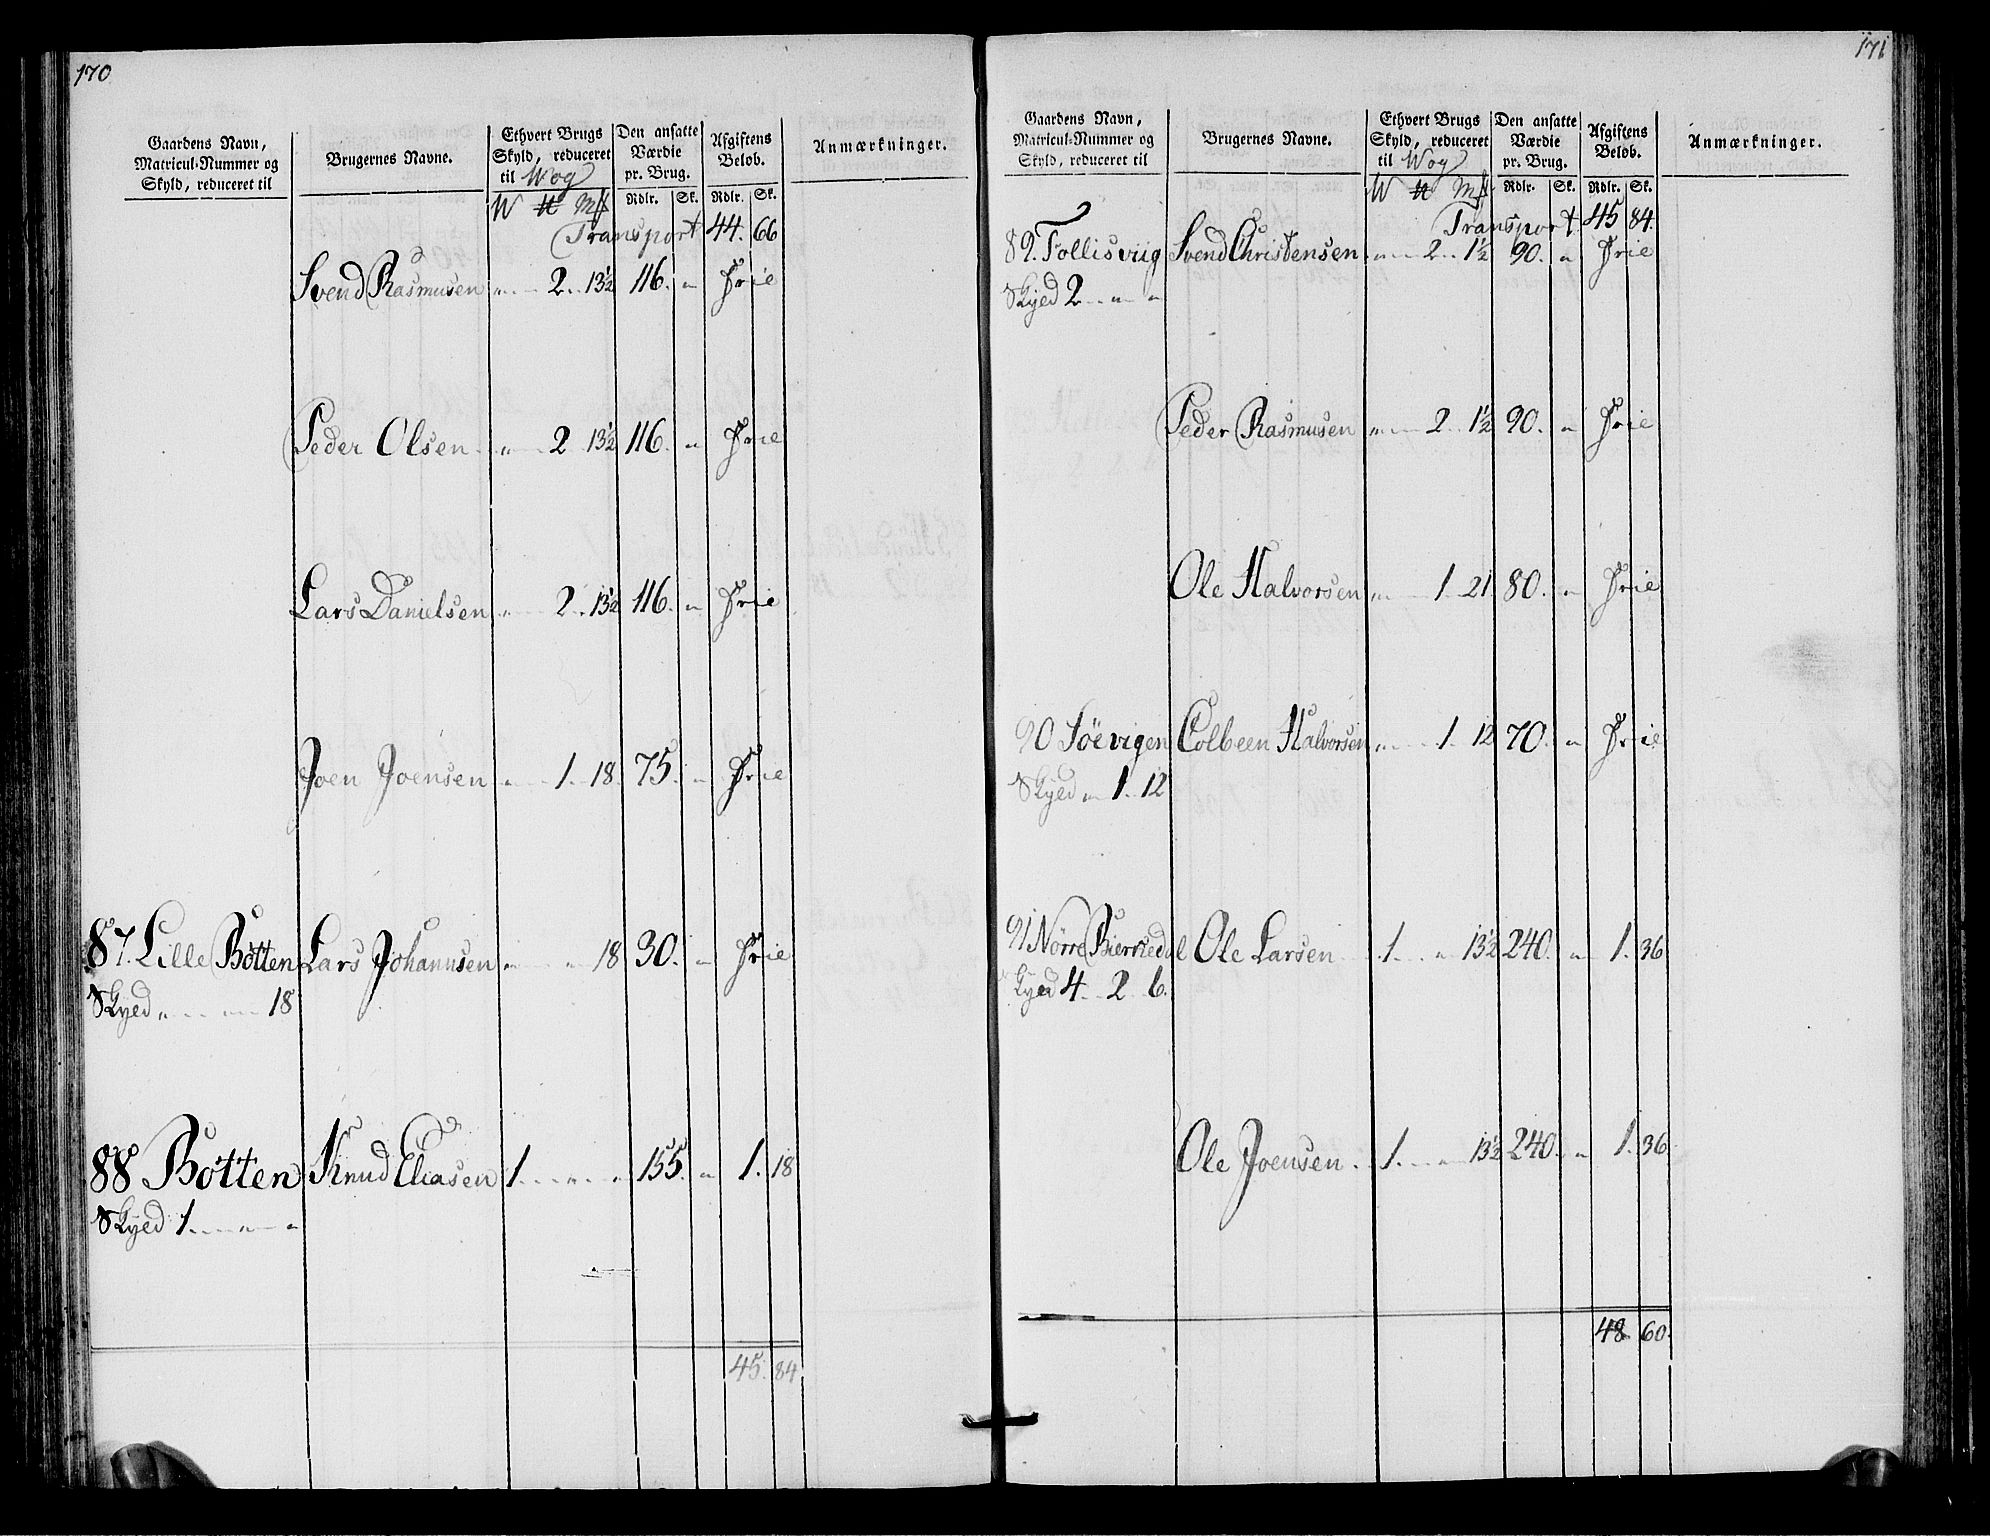 170
Gaardens Navn, Matricul-Nummer og Skyld, reduceret til
Brugernes Navne.
Ethvert Brugs Skyld, reduceret til Wog
Den ansatte Værdie pr. Brug.
Afgiftens Beløb.
Anmærkninger.
W ℔ Mk Rdlr. Sk. Rdlr. Sk.
Transport 44. 66
Svend Rasmusen " 2 13½ 116. " Frie
Peder Olsen " 2 13½ 116. " Frie
Lars Danielsen " 2 13½ 116. " Frie
Joen Joensen " 1 18. 75. " Frie
87. Lille Botten Lars Johannsen " " 18 30. " Frie
Skyed " " 18
88 Botten Knud Eliasen 1 " " 155. " 1. 18
Skyed 1 " "
45. 84
171
Gaardens Navn, Matricul-Nummer og Skyld, reduceret til
Brugernes Navne.
Ethvert Brugs Skyld, reduceret til Wog
Den ansatte Værdie pr. Brug.
Afgiftens Beløb.
Anmærkninger.
W ℔ Mk Rdlr. Sk. Rdlr. Sk.
Transport 45 84.
89. Follisviig Svend Christensen " 2 1½ 90. " Frie
Skyed 2 " "
Peder Rasmusen " 2 1½ 90. " Frie
Ole Halvorsen " 1 21 80. " Frie
90 Söevigen Colbeen Halvorsen " 1 12 70. " Frie
Skyed " 1 12
91 Nörre Bierkedal Ole Larsen 1 " 13½ 240. " 1. 36
Skyed 4 2 6.
Ole Joensen 1 " 13½ 240. " 1. 36
48 60.